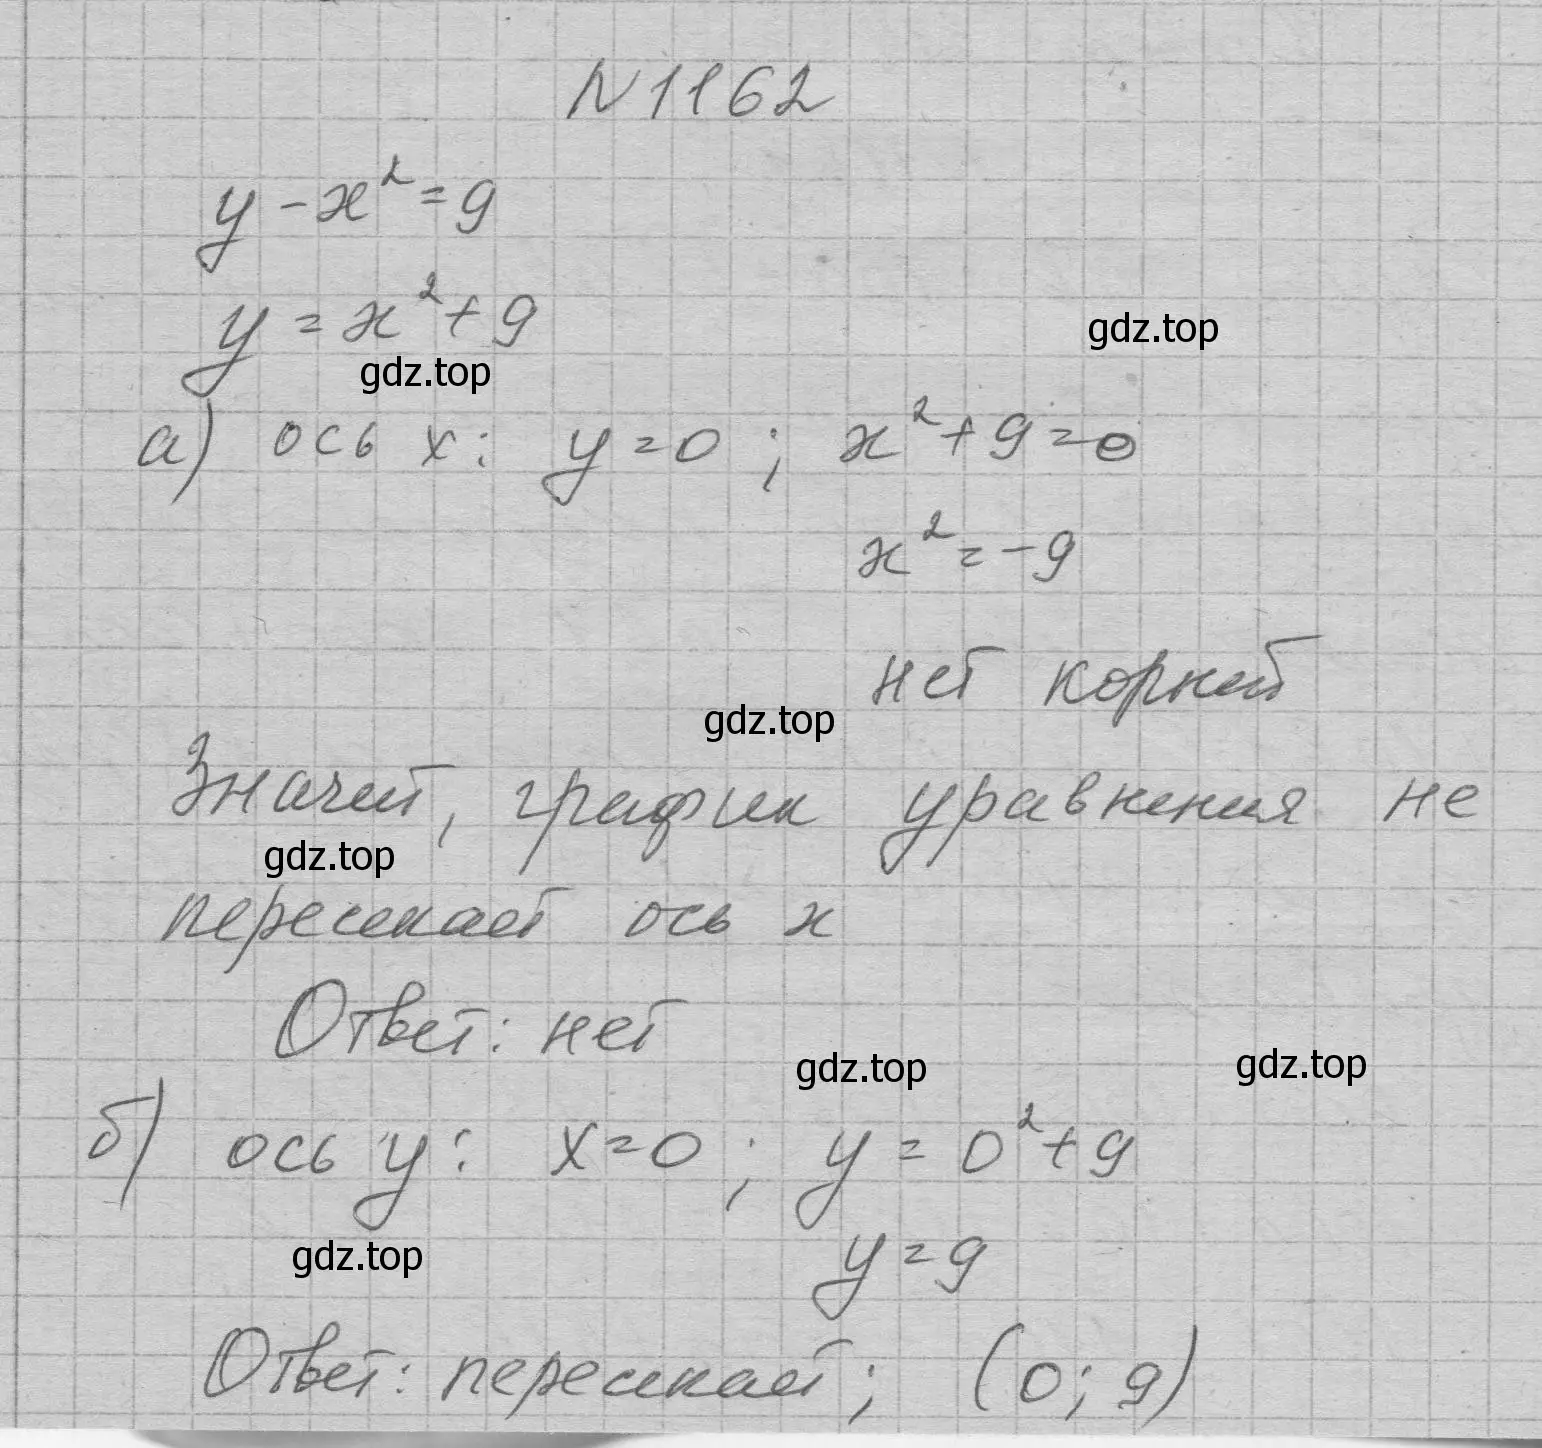 N1162
y - x² = 9
y = x² + 9
gdz.top
gdz.top
а) ось x: y = 0 ; x² + 9 = 0
x² = -9
нет корней
gdz.top
Значит, график уравнения не
gdz.top
пересекает ось x
Ответ: нет
gdz.top gdz.top
б) ось y: x = 0 ; y = 0² + 9
gdz.top
y = 9
Ответ: пересекает ; (0; 9)